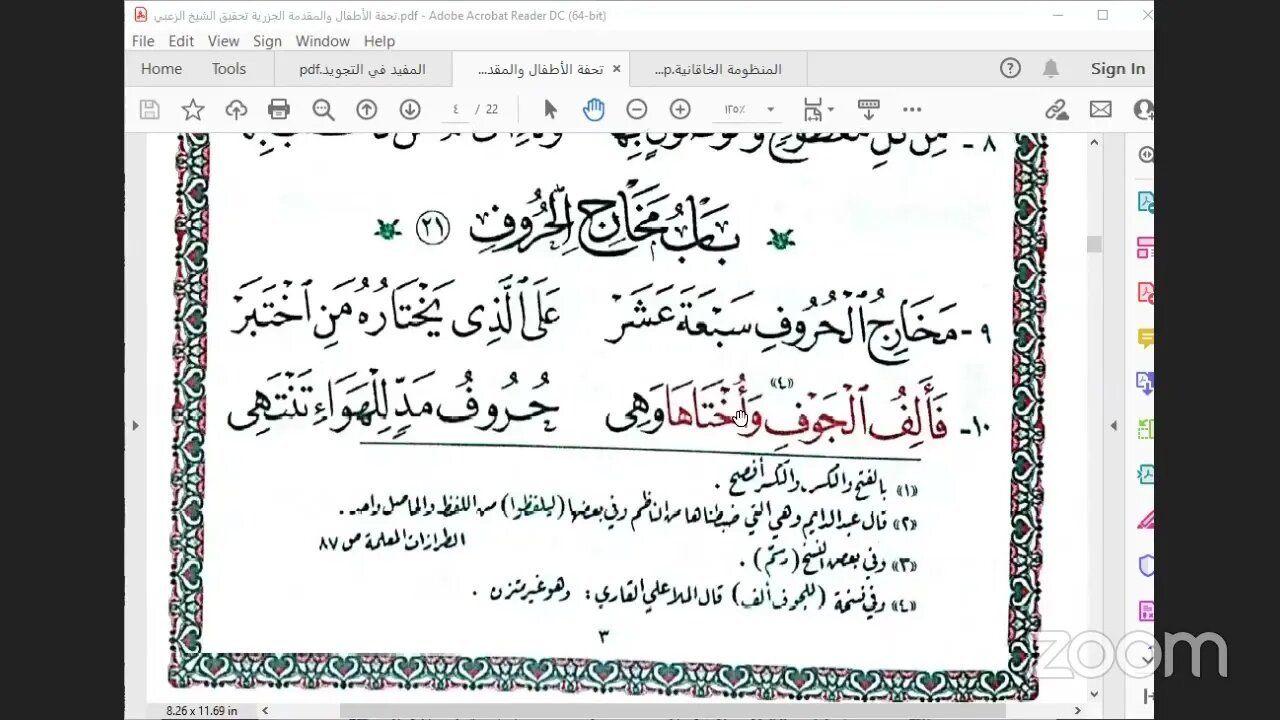 تحفة الأطفال والمقدمة الجزرية تحقيق الشيخ الزعبي.pdf - Adobe Acrobat Reader DC (64-bit)
File Edit View Sign Window Help
Home Tools المفيد في التجويد.pdf تحفة الأطفال والمقد... × المنظومة الخاقانية.p... Sign In
٤ / 22 ١٢٥٪
٨ - مِن كُلِّ مَقْطُوعٍ وَمَوْصُولٍ بِهَا
بَابُ مَخَارِجِ الْحُرُوفِ (٢١)
٩- مَخَارِجُ الْحُرُوفِ سَبْعَةَ عَشَرْ عَلَى الَّذِي يَخْتَارُهُ مَنِ اخْتَبَرْ
١٠- فَأَلِفُ الْجَوْفِ «٤» وَأُخْتَاهَا وَهِي حُرُوفُ مَدٍّ لِلْهَوَاءِ تَنْتَهِي
«١» بالفتح والكسر، والكسر أفصح .
«٢» قال عبد الدايم وهي التي ضبطناها من الناظم وفي بعضها (ليلفظوا) من اللفظ والحاصل واحد .
الطرازات المعلمة ص ٨٧
«٣» وفي بعض النسخ ( رسم ) .
«٤» وفي نسخة (للجوف ألف) قال الملا علي القاري : وهو غير متزن .
٣
zoom
8.26 x 11.69 in